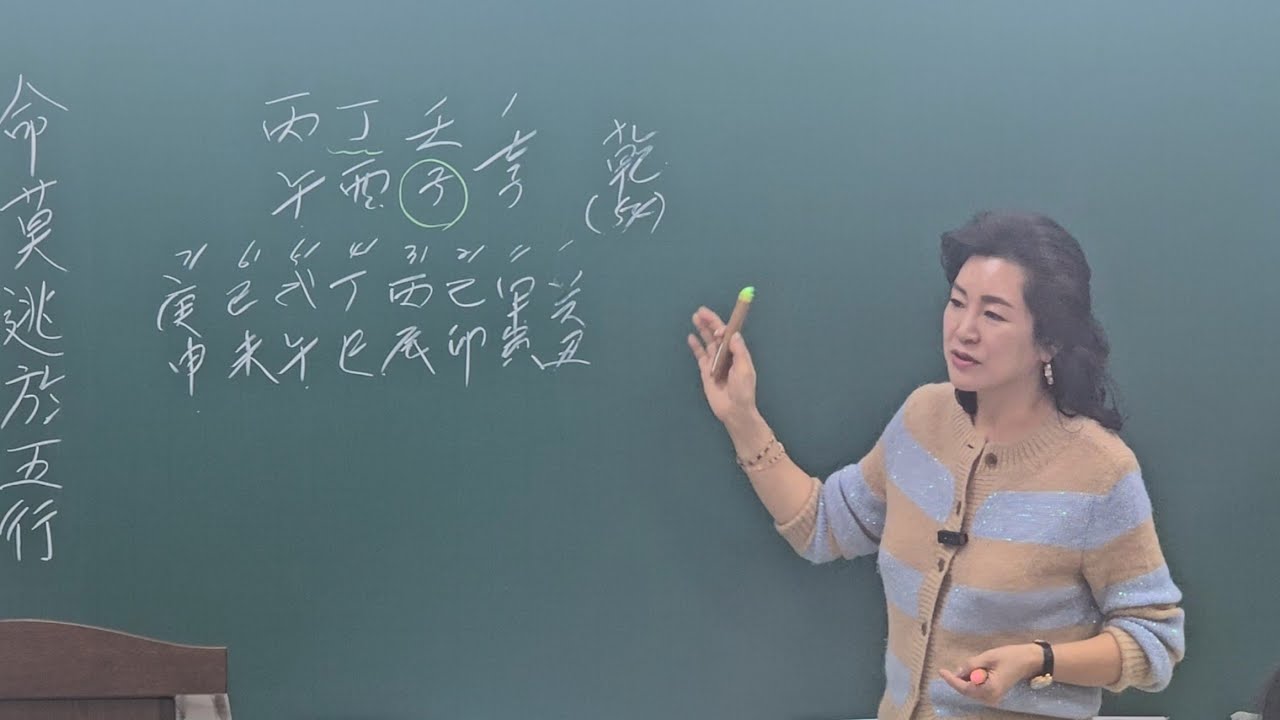 命莫逃於五行
丙 丁 壬
午 酉 子 乾
(54)
71 61 51 41 31 21 11 1
庚 己 戊 丁 丙 乙 甲 癸
申 未 午 巳 辰 卯 寅 丑